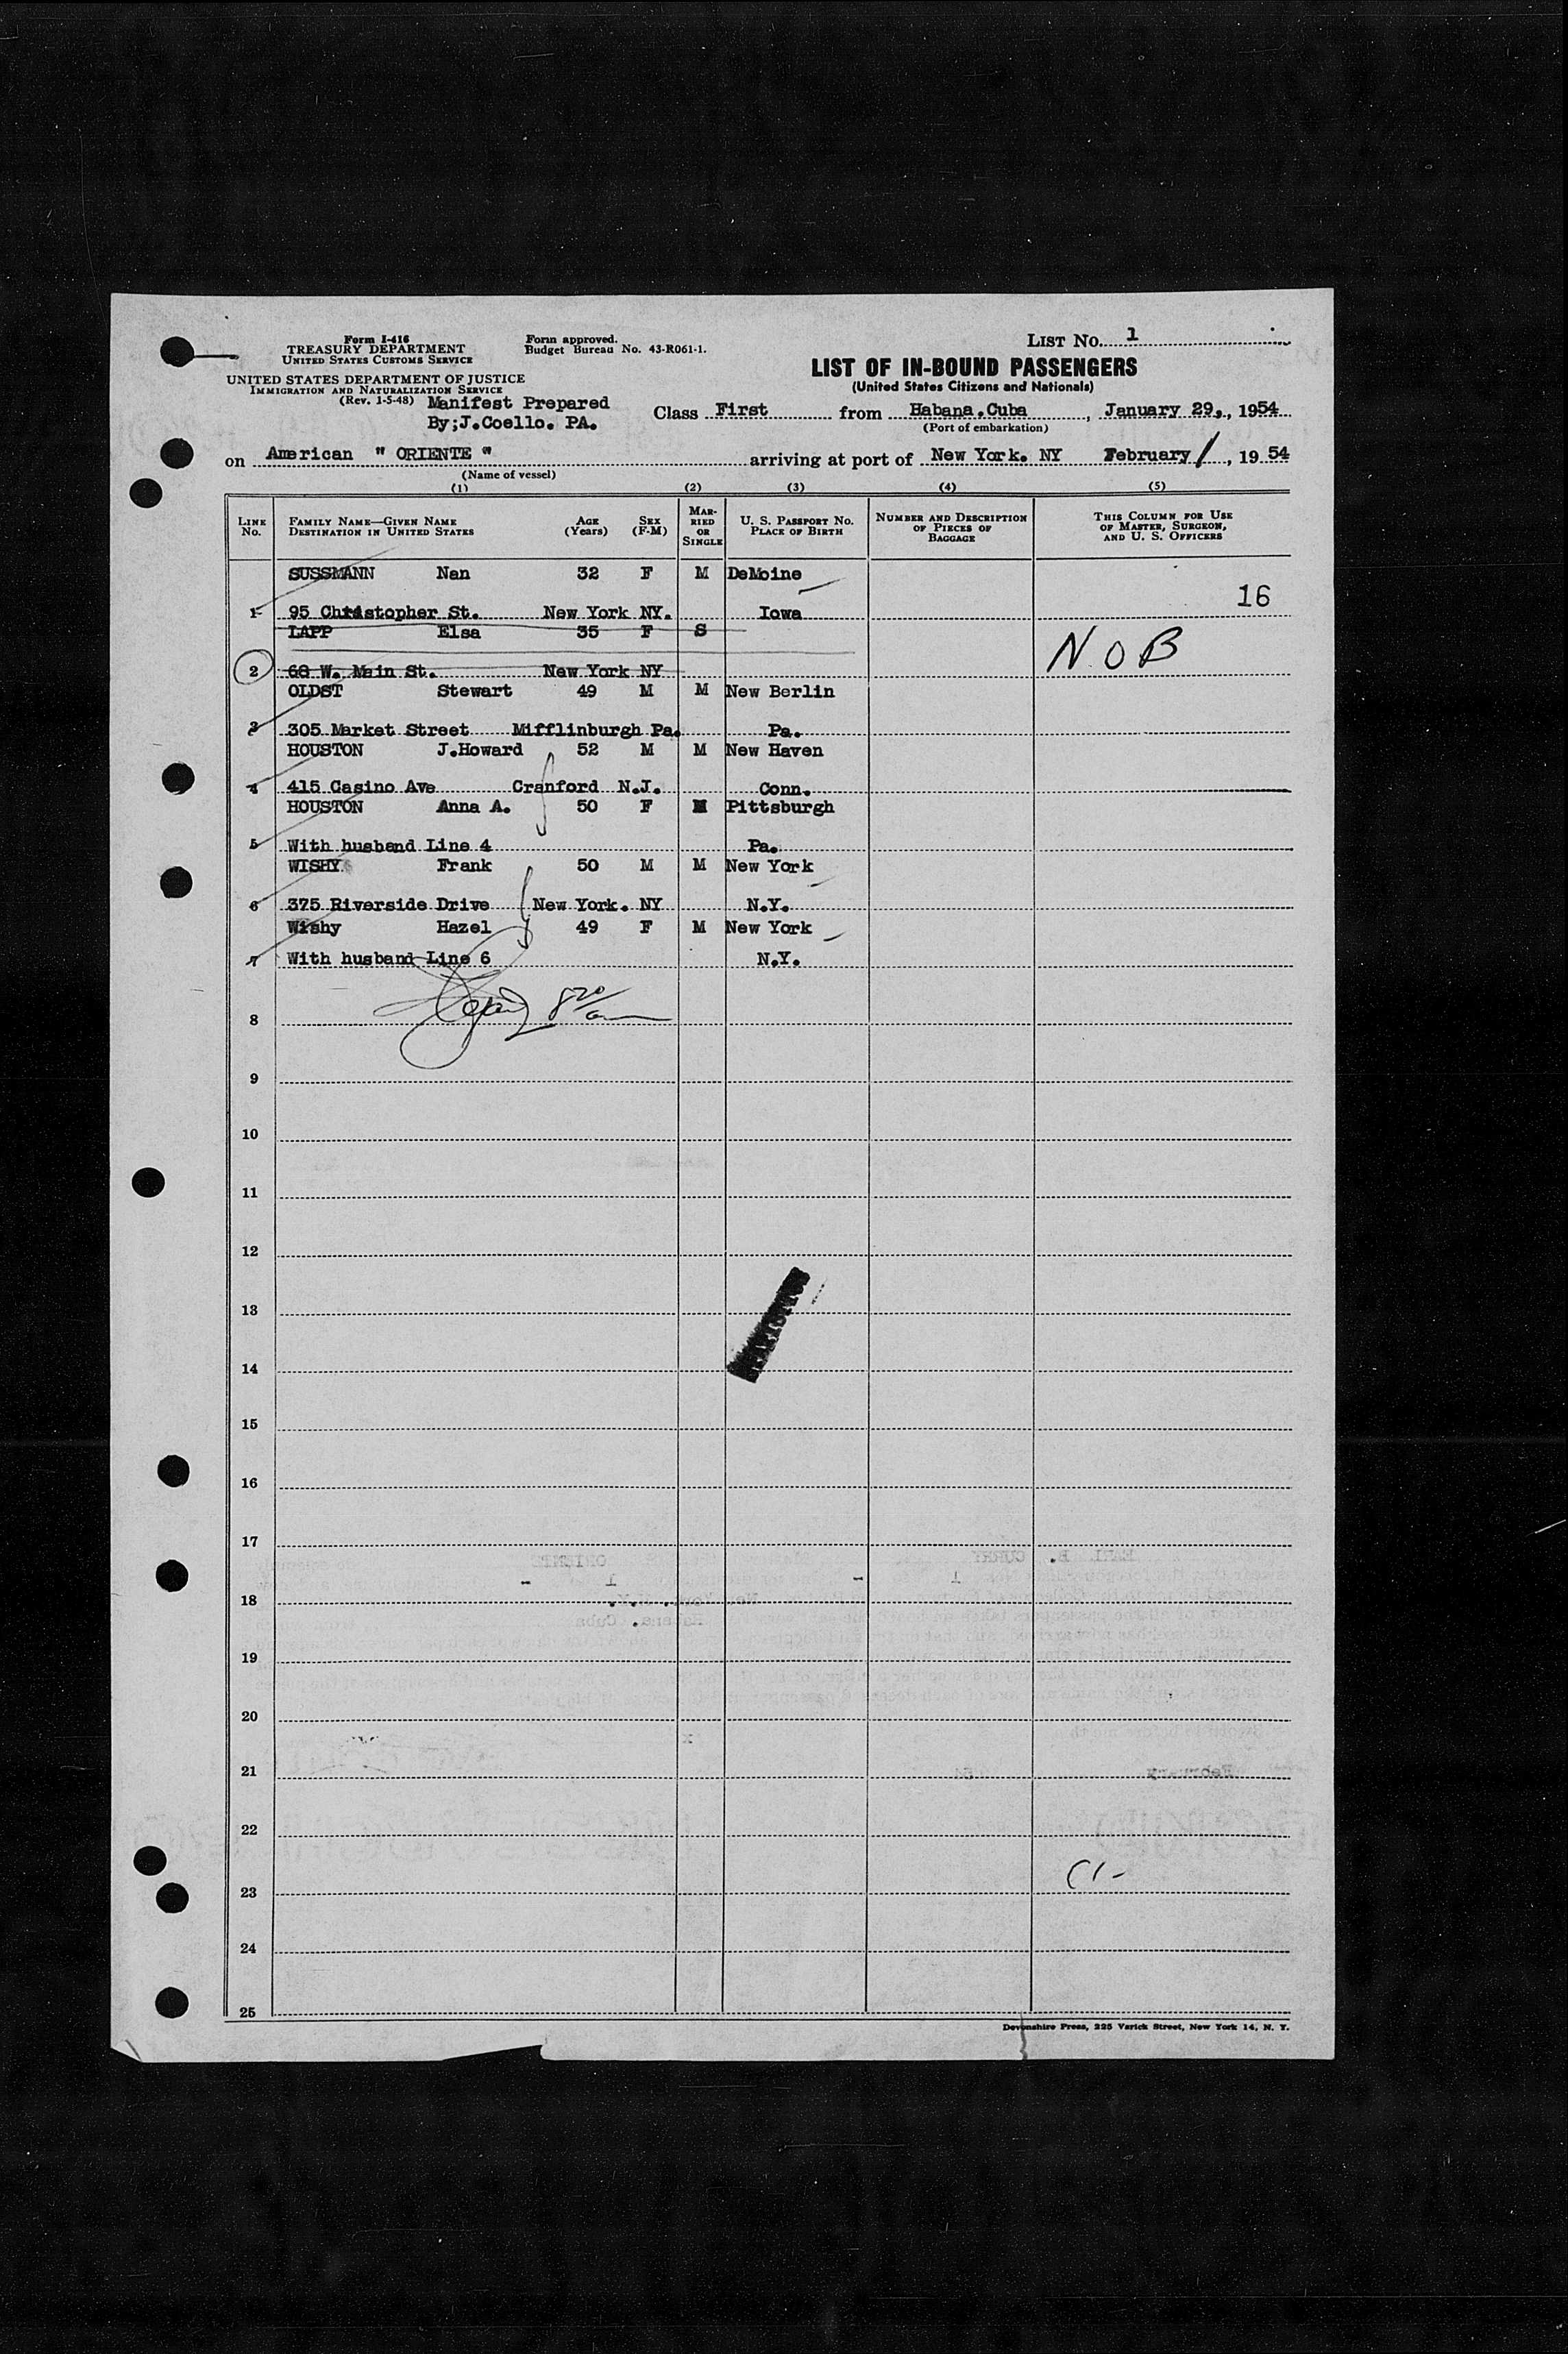 LIST No. 1
Form I-416
TREASURY DEPARTMENT
UNITED STATES CUSTOMS SERVICE
Form approved.
Budget Bureau No. 43-R061-1.
UNITED STATES DEPARTMENT OF JUSTICE
IMMIGRATION AND NATURALIZATION SERVICE
(Rev. 1-5-48)
Manifest Prepared
By;J.Coello. PA.
LIST OF IN-BOUND PASSENGERS
(United States Citizens and Nationals)
Class First from Habana.Cuba, January 29., 1954
(Port of embarkation)
on American " ORIENTE " arriving at port of New York. NY February 1, 1954
(Name of vessel)
(1) (2) (3) (4) (5)
LINE No. FAMILY NAME—GIVEN NAME DESTINATION IN UNITED STATES AGE (Years) SEX (F-M) MARRIED OR SINGLE U. S. PASSPORT NO. PLACE OF BIRTH NUMBER AND DESCRIPTION OF PIECES OF BAGGAGE THIS COLUMN FOR USE OF MASTER, SURGEON, AND U. S. OFFICERS
SUSSMANN Nan 32 F M DeMoine
1 95 Christopher St. New York NY. Iowa 16
LAPP Elsa 35 F S
2 68 W. Main St. New York NY NOB
OLDST Stewart 49 M M New Berlin
3 305 Market Street Mifflinburgh Pa. Pa.
HOUSTON J.Howard 52 M M New Haven
4 415 Casino Ave Cranford N.J. Conn.
HOUSTON Anna A. 50 F M Pittsburgh
5 With husband Line 4 Pa.
WISHY Frank 50 M M New York
6 375 Riverside Drive New York. NY N.Y.
Wishy Hazel 49 F M New York
7 With husband Line 6 N.Y.
8
9
10
11
12
13
14
15
16
17
18
19
20
21
22
23
24
25
Devonshire Press, 225 Varick Street, New York 14, N. Y.